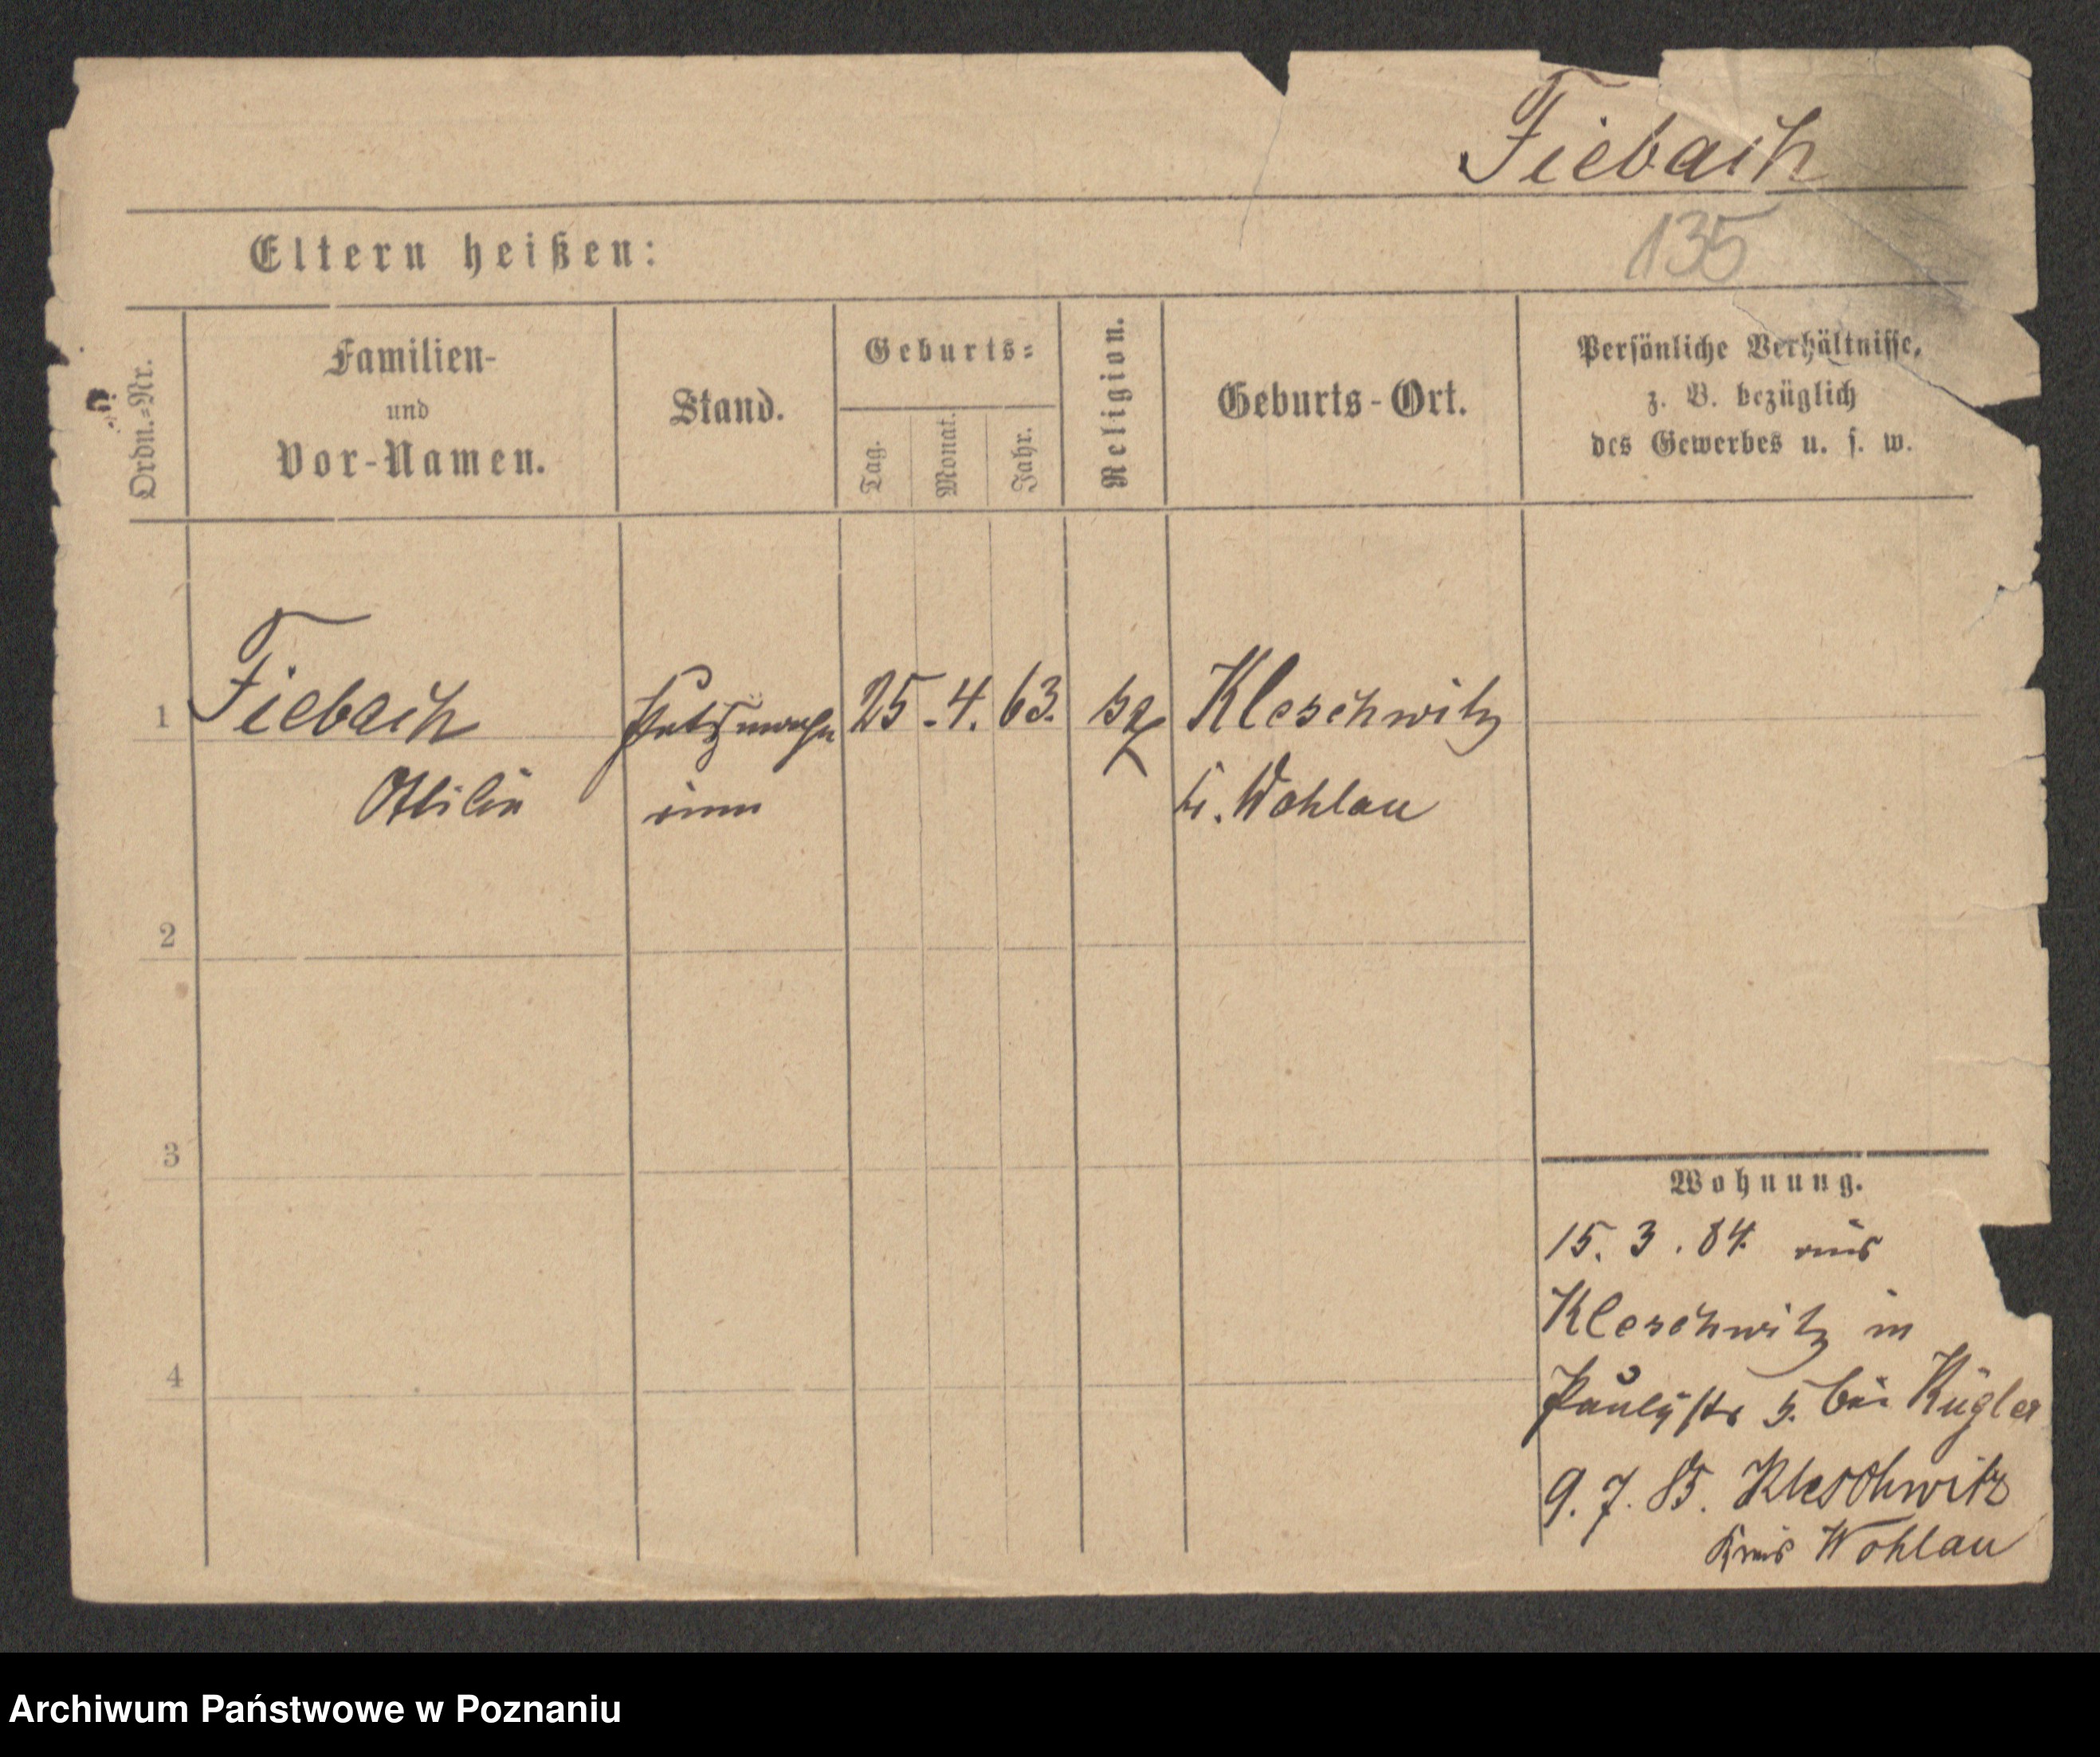 Fiebach
135
Eltern heißen:
Ordn.=Nr.
Familien-
und
Vor-Namen.
Stand.
Geburts=
Tag.
Monat.
Jahr.
Religion.
Geburts-Ort.
Persönliche Verhältnisse,
z. B. bezüglich
des Gewerbes u. s. w.
1
Fiebach
Ottilie
Putzmach
erin
25.
4.
63.
Kleschwitz
Kr. Wohlau
2
3
4
Wohnung.
15. 3. 84 aus
Kleschwitz in
Paulystr 5. bei Kugler
9. 7. 85. Kleschwitz
Kreis Wohlau
Archiwum Państwowe w Poznaniu